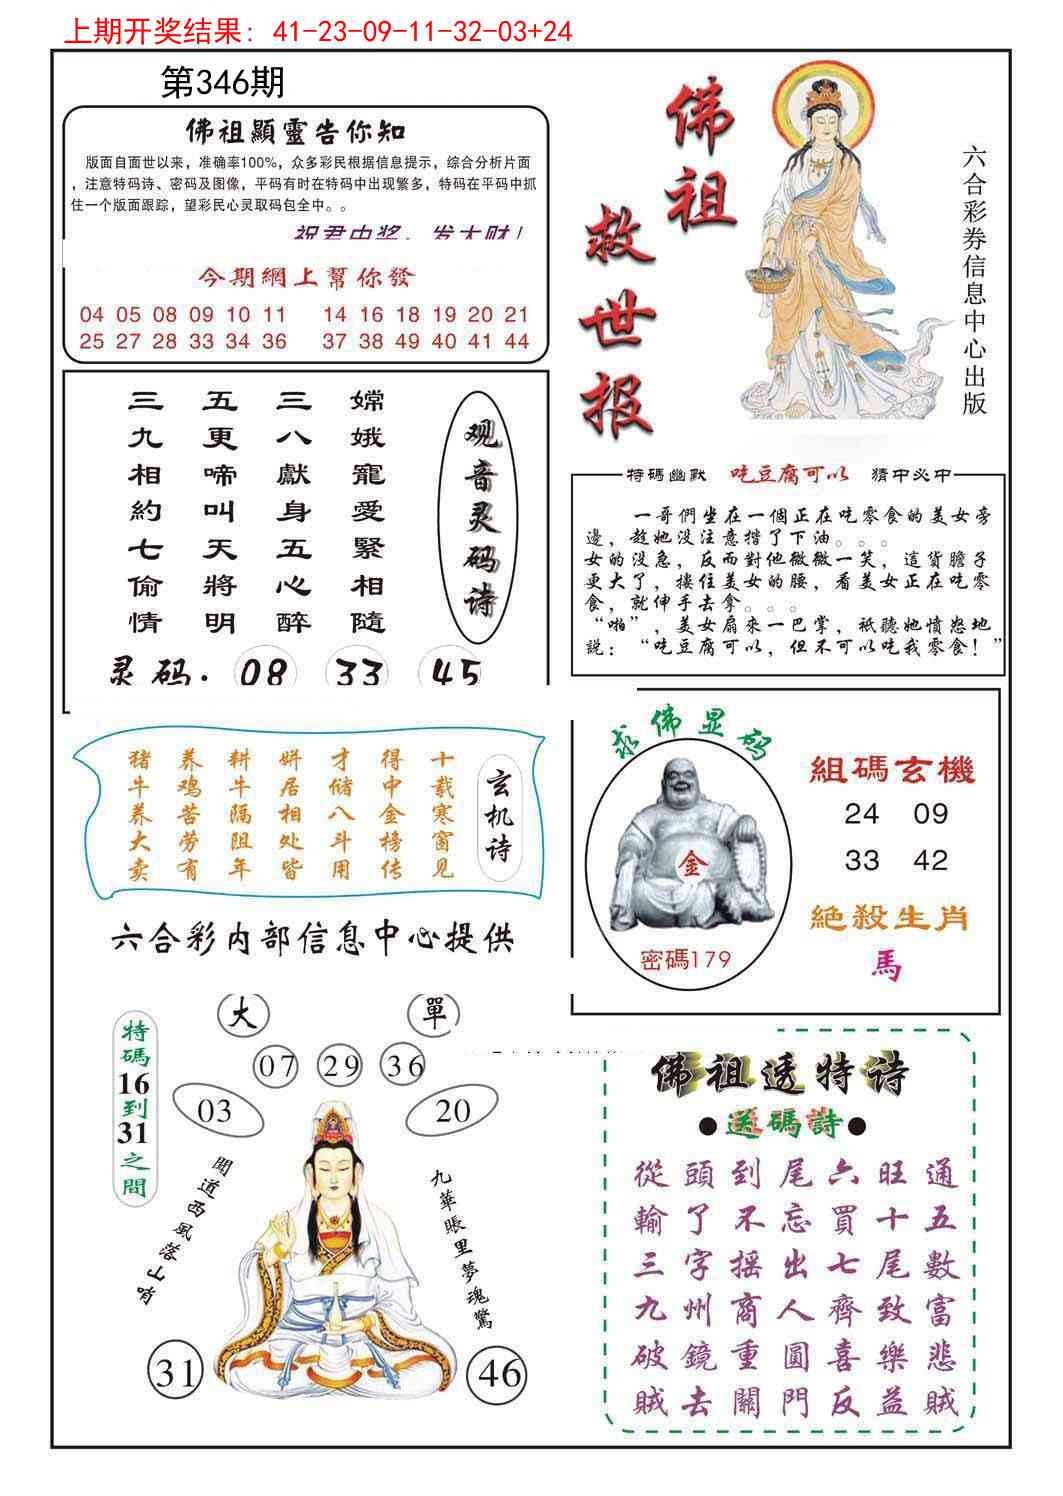 上期开奖结果: 41-23-09-11-32-03+24
第346期
佛祖顯靈告你知
版面自面世以来，准确率100%，众多彩民根据信息提示，综合分析片面
，注意特码诗、密码及图像，平码有时在特码中出现繁多，特码在平码中抓
住一个版面跟踪，望彩民心灵取码包全中。。
祝君中奖，发大财！
今期網上幫你發
04 05 08 09 10 11 14 16 18 19 20 21
25 27 28 33 34 36 37 38 49 40 41 44
佛祖
救世报
六合彩券信息中心出版
观音灵码诗
嫦娥寵愛緊相隨
三八獻身五心醉
五更啼叫天將明
三九相約七偷情
灵码: 08 33 45
特碼幽默 吃豆腐可以 猜中必中
一哥們坐在一個正在吃零食的美女旁
邊，趁她没注意揩了下油。。。
女的没急，反而對他微微一笑，這貨膽子
更大了，摟住美女的腰，看美女正在吃零
食，就伸手去拿。。。
“啪”，美女扇來一巴掌，衹聽她憤怒地
説：“吃豆腐可以，但不可以吃我零食！”
玄机诗
十载寒窗见
得中金榜传
才储八斗用
姘居相处皆
耕牛隔阻年
养鸡苦劳有
猪牛养大卖
六合彩内部信息中心提供
求佛显码
金
密碼179
組碼玄機
24 09
33 42
絕殺生肖
馬
大 單
07 29 36
03 20
特碼16到31之間
聞道西風落山哨
九華賬里夢魂驚
31 46
佛祖透特诗
●送碼詩●
從頭到尾六旺通
輸了不忘買十五
三字摇出七尾數
九州商人齊致富
破鏡重圓喜樂悲
賊去關門反益賊